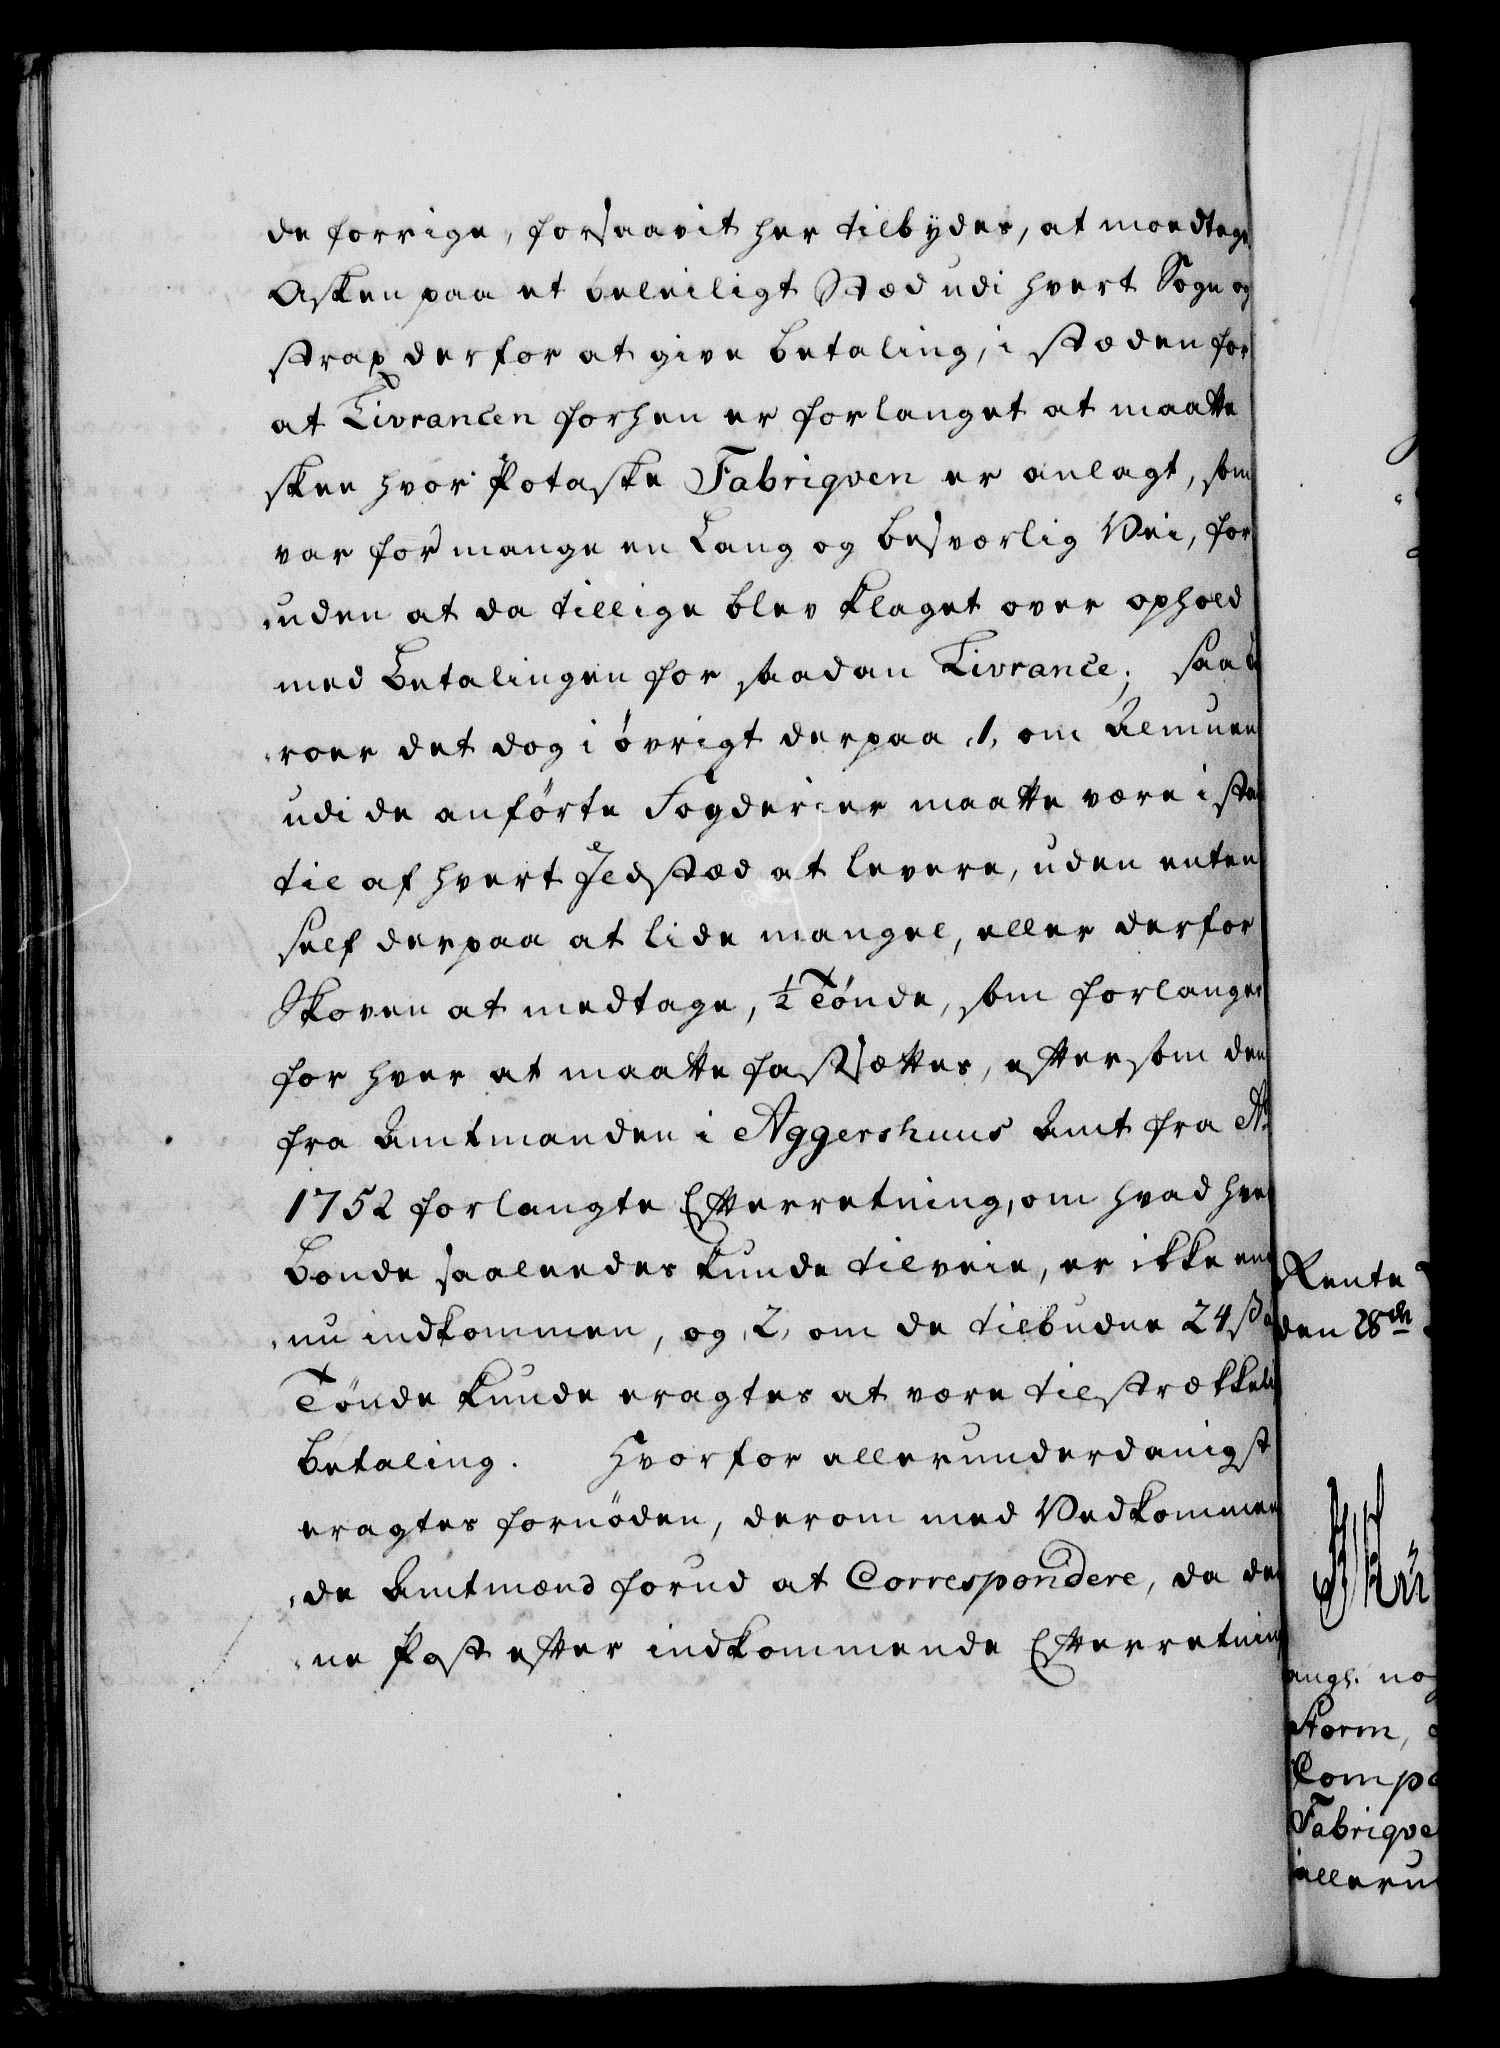 de forrige, forsaavit her tilbydes, at modtage
Asken paa et beleiligt Stæd udi hvert Sogn og
strax derfor at give betaling, i stæden for
at Livrancen forhen er forlanget at maatte
skee hvor Potaske Fabriqven er anlagt, som
var for mange en Lang og besværlig Vei, for
uden at da tillige blev klaget over ophold
med Betalingen for saadan Livrance; saa be
roer det dog i øvrigt derpaa 1, om Almuen
udi de anførte Fogderier maatte være i stand
til af hvert Ildstæd at levere, uden enten
self derpaa at lide mangel, eller derfor
Skoven at medtage, ½ Tønde, som forlanges
for hver at maatte fastsættes, eftersom den
fra Amtmanden i Aggershuus Amt fra Ao
1752 forlangte Efterretning, om hvad hver
Bonde saaledes kunde tilveie, er ikke end
nu indkommen, og 2, om de tilbudne 24 ß
Tønde kunde eragtes at være tilstrækkelig
betaling. Hvorfor allerunderdanigst
eragtes fornøden, derom med Vedkommen
de Amtmænd forud at Correspondere, da den
ne Post efter indkommende Efterretning
Rente
den 28de
angl. no
Storm,
Comp
Fabriqve
alleru